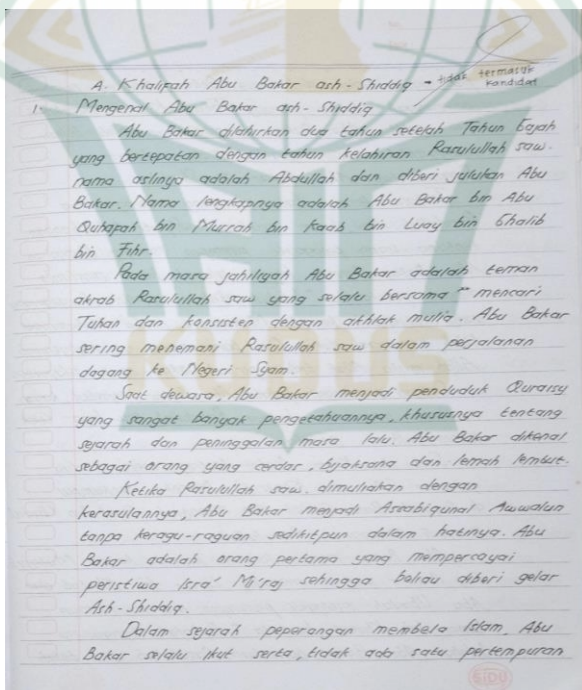 A. Khalifah Abu Bakar ash-Shiddiq → tidak termasuk kandidat
1. Mengenal Abu Bakar ash-Shiddiq
Abu Bakar dilahirkan dua tahun setelah Tahun Gajah
yang bertepatan dengan tahun kelahiran Rasulullah saw.
nama aslinya adalah Abdullah dan diberi julukan Abu
Bakar. Nama lengkapnya adalah Abu Bakar bin Abu
Quhafah bin Murrah bin Kaab bin Luay bin Ghalib
bin Fihr.
Pada masa jahiliyah Abu Bakar adalah teman
akrab Rasulullah saw yang selalu bersama" mencari
Tuhan dan konsisten dengan akhlak mulia. Abu Bakar
sering menemani Rasulullah saw dalam perjalanan
dagang ke Negeri Syam.
Saat dewasa, Abu Bakar menjadi penduduk Quraisy
yang sangat banyak pengetahuannya, khususnya tentang
sejarah dan peninggalan masa lalu. Abu Bakar dikenal
sebagai orang yang cerdas, bijaksana dan lemah lembut.
Ketika Rasulullah saw. dimuliakan dengan
kerasulannya, Abu Bakar menjadi Assabiqunal Awwalun
tanpa keragu-raguan sedikitpun dalam hatinya. Abu
Bakar adalah orang pertama yang mempercayai
peristiwa Isra' Mi'raj sehingga beliau diberi gelar
Ash-Shiddiq.
Dalam sejarah peperangan membela Islam, Abu
Bakar selalu ikut serta, tidak ada satu pertempuran
SIDU
KUDUS